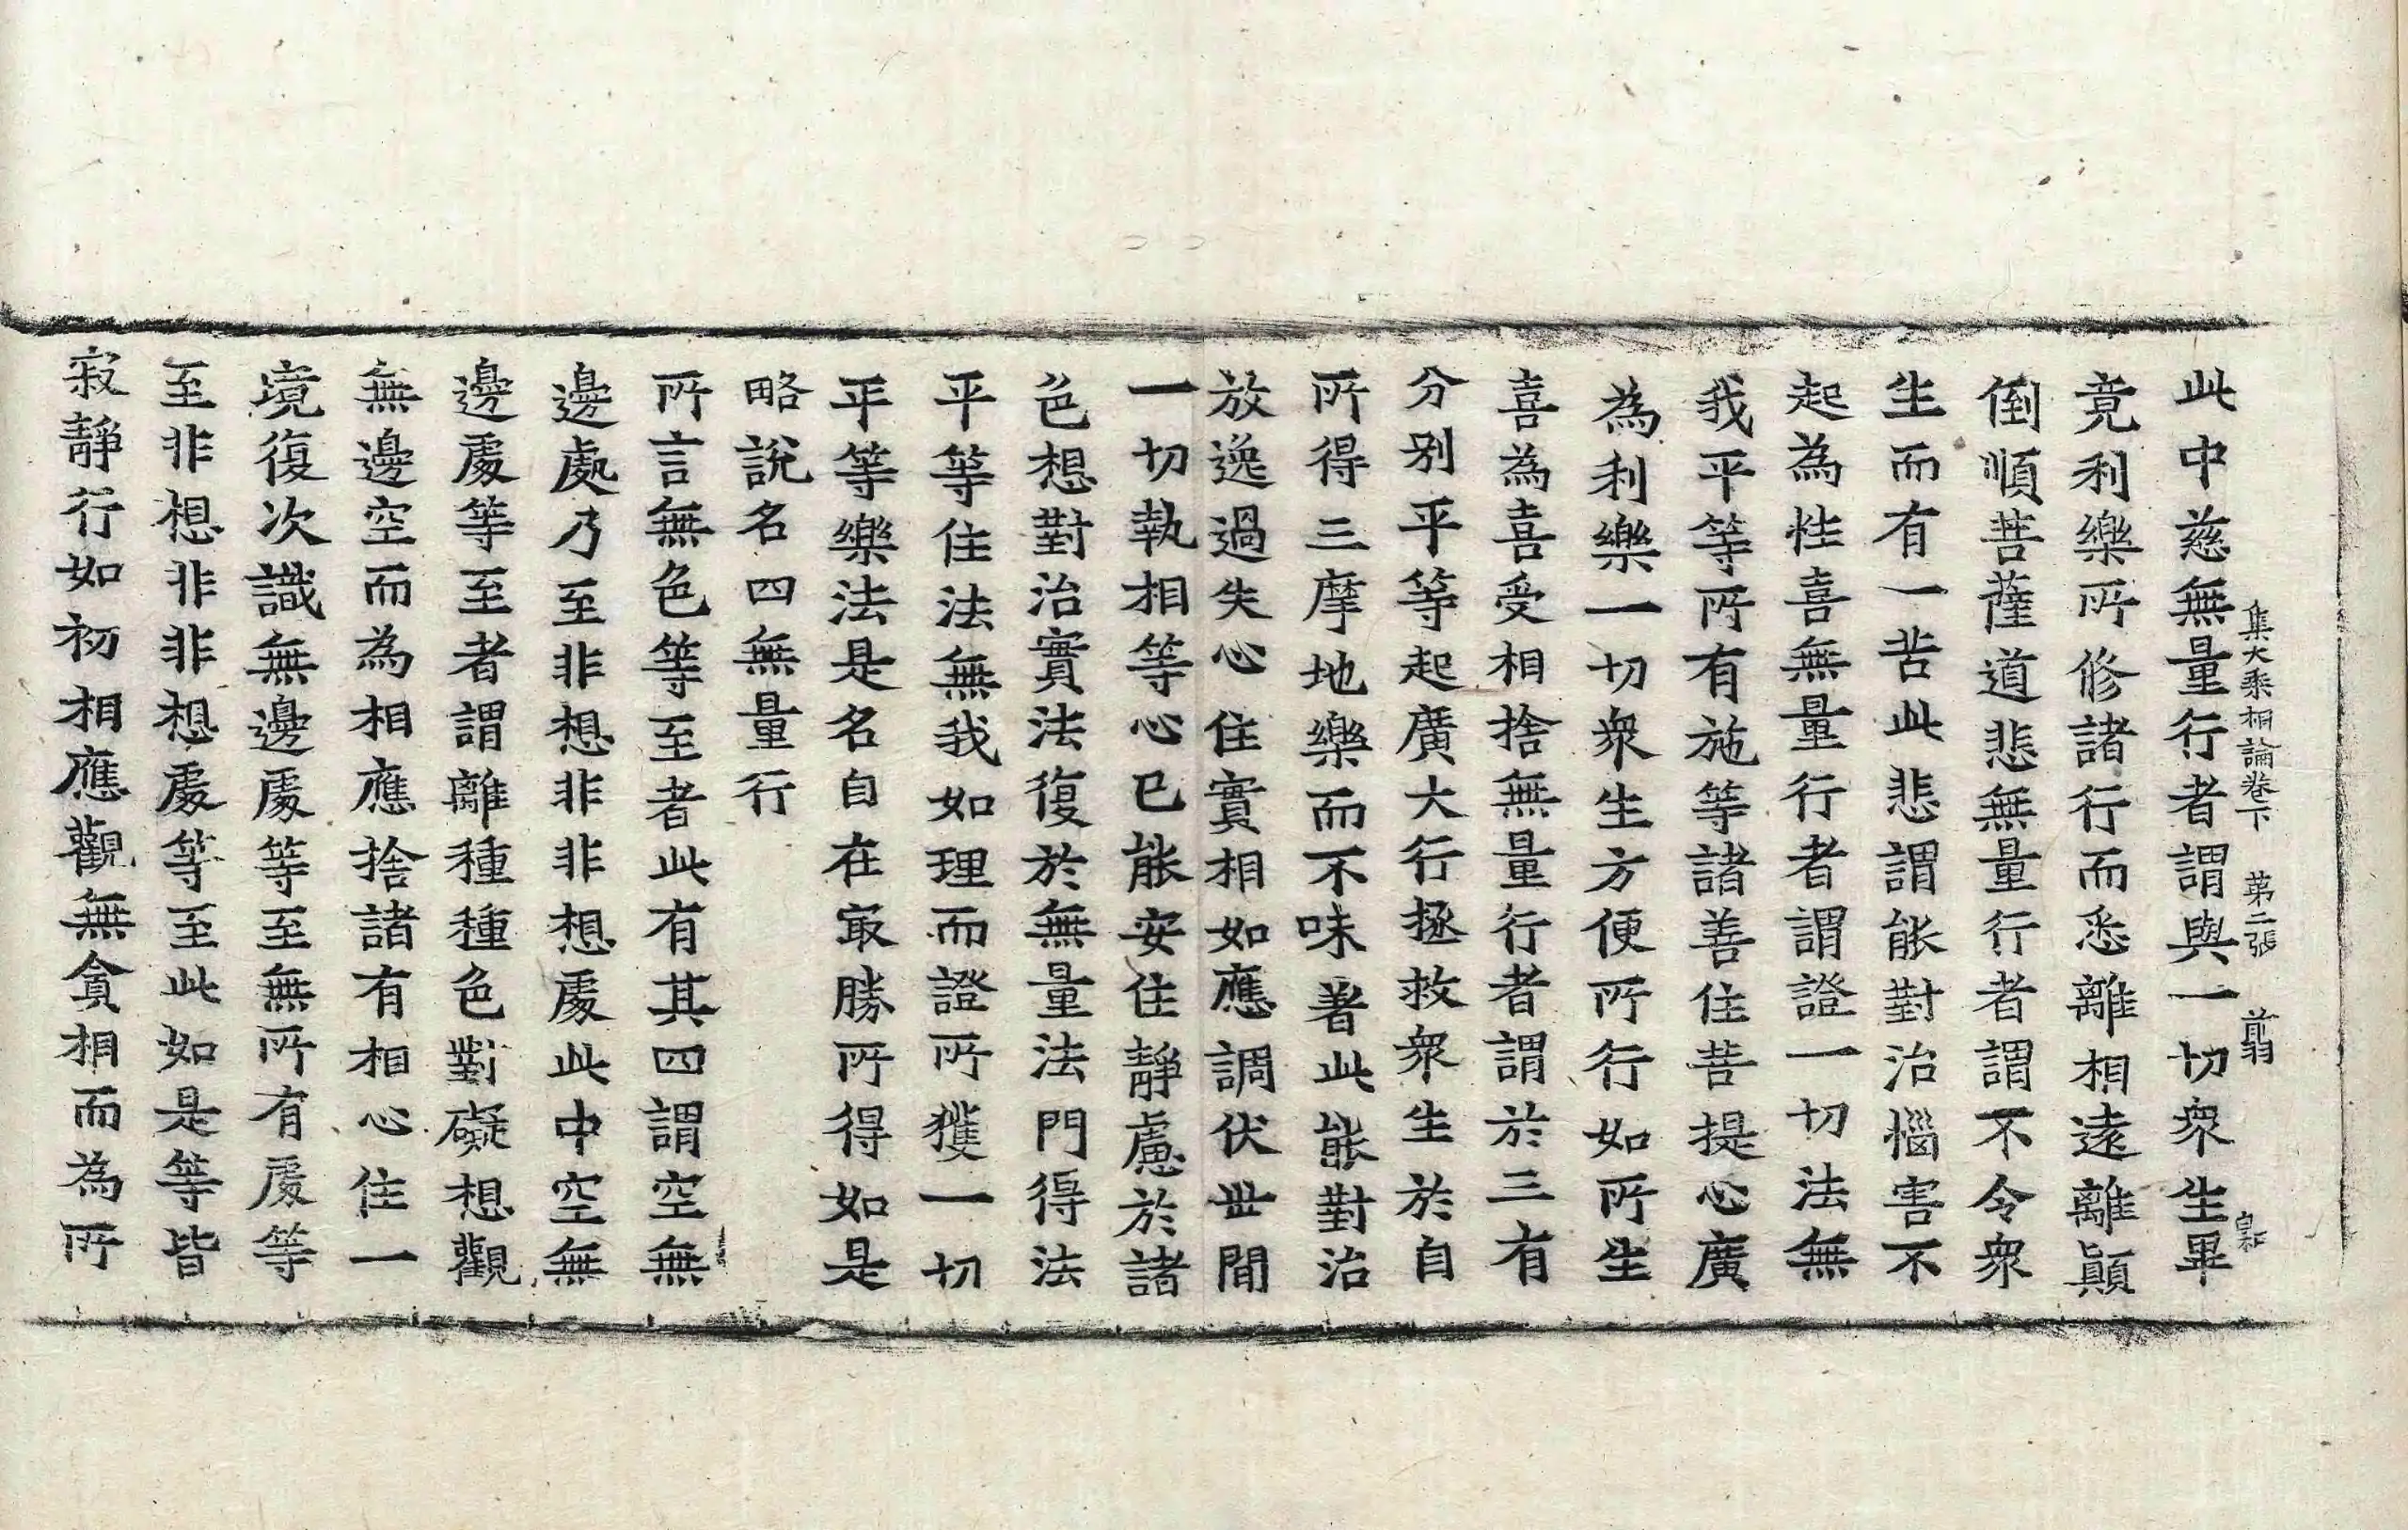 集大乘相論卷下 第二張 前羽
此中慈無量行者謂與一切衆生畢
竟利樂所修諸行而悉離相遠離顚
倒順菩薩道悲無量行者謂不令衆
生而有一苦此悲謂能對治惱害不
起為性喜無量行者謂證一切法無
我平等所有施等諸善住菩提心廣
為利樂一切衆生方便所行如所生
喜為喜受相捨無量行者謂於三有
分別平等起廣大行拯救衆生於自
所得三摩地樂而不味著此能對治
放逸過失心住實相如應調伏世間
一切執相等心已能安住靜慮於諸
色想對治實法復於無量法門得法
平等住法無我如理而證所獲一切
平等樂法是名自在㝡勝所得如是
略說名四無量行
所言無色等至者此有其四謂空無
邊處乃至非想非非想處此中空無
邊處等至者謂離種種色對礙想觀
無邊空而為相應捨諸有相心住一
境復次識無邊處等至無所有處等
至非想非非想處等至此如是等皆
寂靜行如初相應觀無貪相而為所